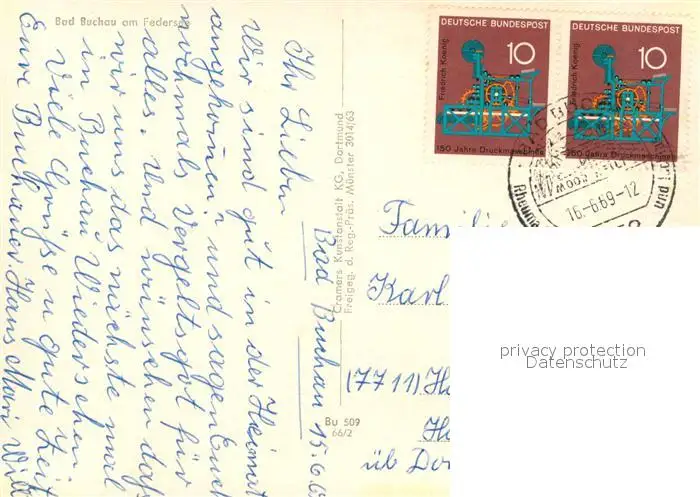 Bad Buchau am Federsee
Bad Buchau 15.6.6
Ihr Lieben
Wir sind gut in der Heimat
angekommen und sagen Euch
nochmals Vergeltsgot für
alles. Und wünschen daß
wir uns das nächste mal
in Buchau Wiedersehen
Viele Grüße u gute Zeit
Eure Buchauer Hans Mari Will
Cramers Kunstanstalt KG, Dortmund
Freigeg. d. Reg.-Präs. Münster 3914/63
Bu 509
66/2
DEUTSCHE BUNDESPOST
10
Friedrich Koenig
150 Jahre Druckmaschinen
DEUTSCHE BUNDESPOST
10
Friedrich Koenig
150 Jahre Druckmaschinen
16.-6.69-12
Rheuma
Moor
Familie
Karl
(7711)
üb Do
privacy protection
Datenschutz